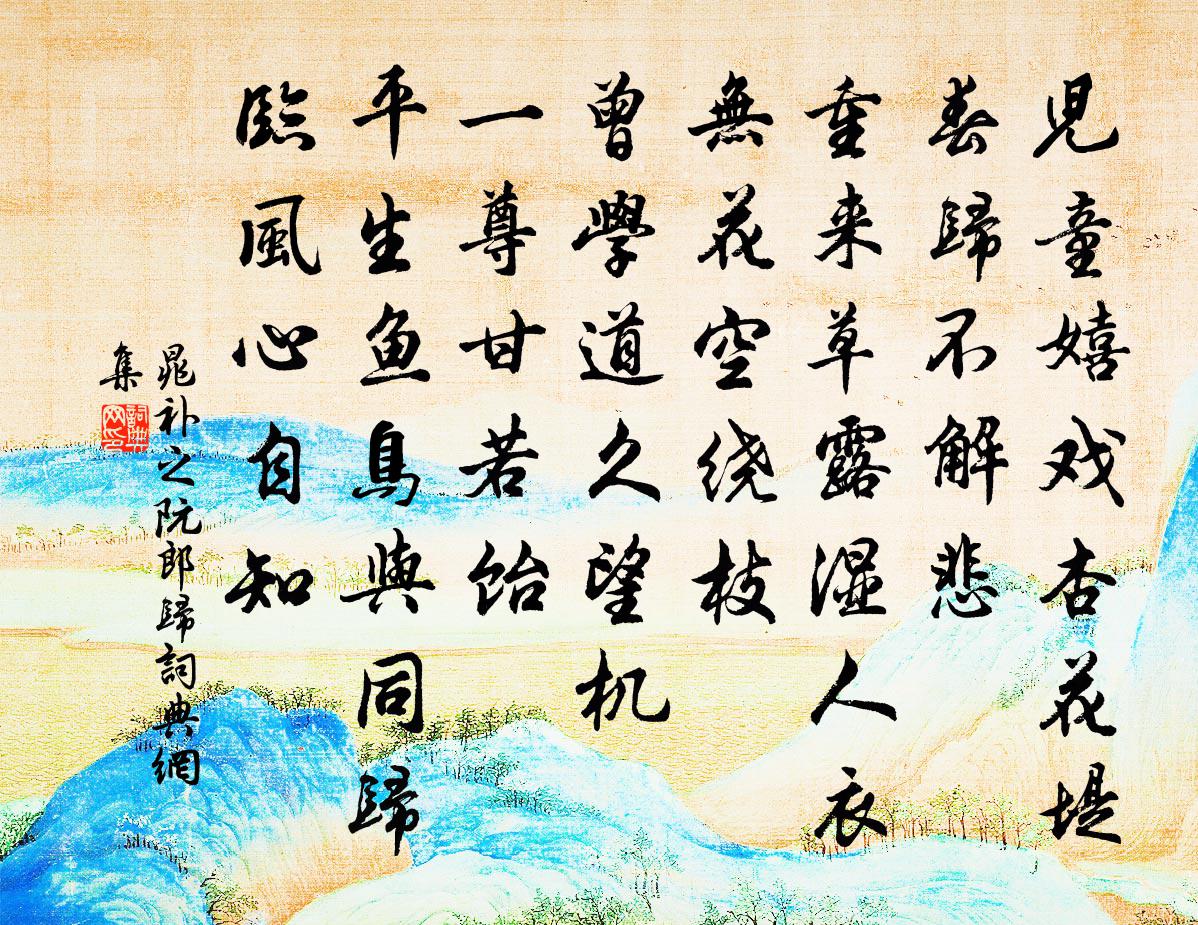 児童嬉戏杏花堤
春歸不解悲
重来草露湿人衣
無花空绕枝
曾學道久望机
一尊甘若飴
平生鱼鳥與同歸
臨風心自知
晁补之阮郎歸詞典網
集
詞典网印